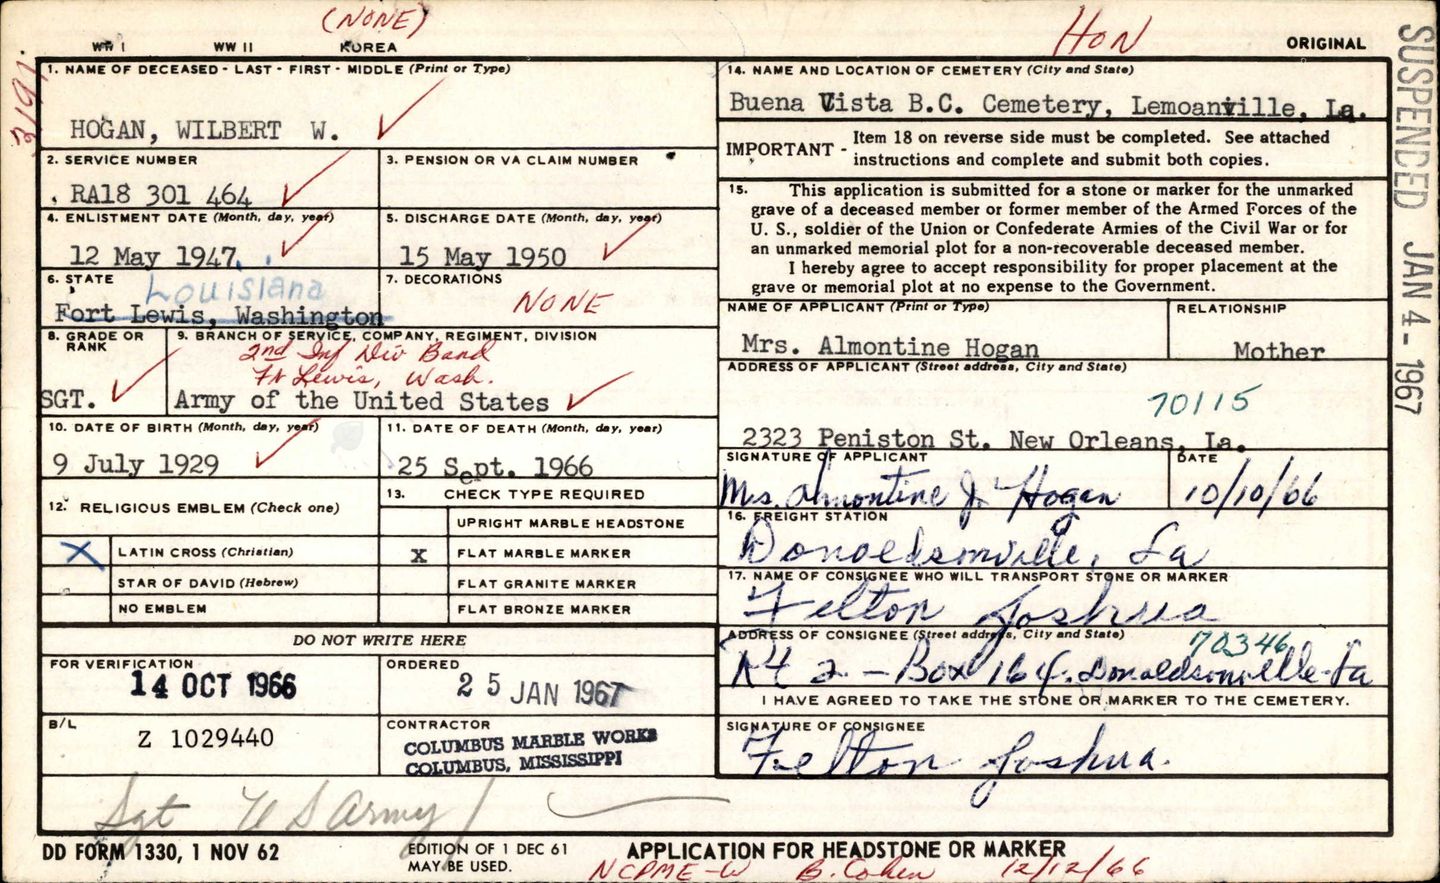 (NONE)
WW I WW II KOREA
HON
ORIGINAL
3191
SUSPENDED JAN 4 - 1967
1. NAME OF DECEASED - LAST - FIRST - MIDDLE (Print or Type)
HOGAN, WILBERT W.
2. SERVICE NUMBER
RA18 301 464
3. PENSION OR VA CLAIM NUMBER
4. ENLISTMENT DATE (Month, day, year)
12 May 1947
5. DISCHARGE DATE (Month, day, year)
15 May 1950
6. STATE
Louisiana
Fort Lewis, Washington
7. DECORATIONS
NONE
8. GRADE OR RANK
SGT.
9. BRANCH OF SERVICE, COMPANY, REGIMENT, DIVISION
2nd Inf Div Band
Ft Lewis, Wash.
Army of the United States
10. DATE OF BIRTH (Month, day, year)
9 July 1929
11. DATE OF DEATH (Month, day, year)
25 Sept. 1966
12. RELIGIOUS EMBLEM (Check one)
X LATIN CROSS (Christian)
STAR OF DAVID (Hebrew)
NO EMBLEM
13. CHECK TYPE REQUIRED
UPRIGHT MARBLE HEADSTONE
X FLAT MARBLE MARKER
FLAT GRANITE MARKER
FLAT BRONZE MARKER
DO NOT WRITE HERE
FOR VERIFICATION
14 OCT 1966
ORDERED
25 JAN 1967
B/L
Z 1029440
CONTRACTOR
COLUMBUS MARBLE WORKS
COLUMBUS, MISSISSIPPI
14. NAME AND LOCATION OF CEMETERY (City and State)
Buena Vista B.C. Cemetery, Lemoanville, La.
IMPORTANT - Item 18 on reverse side must be completed. See attached
instructions and complete and submit both copies.
15. This application is submitted for a stone or marker for the unmarked
grave of a deceased member or former member of the Armed Forces of the
U. S., soldier of the Union or Confederate Armies of the Civil War or for
an unmarked memorial plot for a non-recoverable deceased member.
I hereby agree to accept responsibility for proper placement at the
grave or memorial plot at no expense to the Government.
NAME OF APPLICANT (Print or Type)
Mrs. Almontine Hogan
RELATIONSHIP
Mother
ADDRESS OF APPLICANT (Street address, City and State)
70115
2323 Peniston St. New Orleans, La.
SIGNATURE OF APPLICANT
Mrs. Almontine J. Hogan
DATE
10/10/66
16. FREIGHT STATION
Donaldsonville, La
17. NAME OF CONSIGNEE WHO WILL TRANSPORT STONE OR MARKER
Felton Joshua
ADDRESS OF CONSIGNEE (Street address, City and State)
70346
Rt 2 - Box 164, Donaldsonville La
I HAVE AGREED TO TAKE THE STONE OR MARKER TO THE CEMETERY.
SIGNATURE OF CONSIGNEE
Felton Joshua.
Sgt US Army /
DD FORM 1330, 1 NOV 62
EDITION OF 1 DEC 61
MAY BE USED.
APPLICATION FOR HEADSTONE OR MARKER
NCPME-W B. Cohen 12/12/66